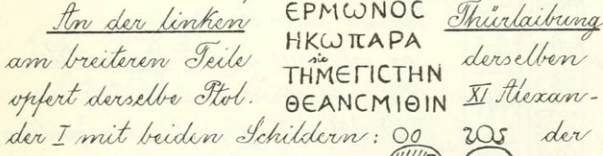 An der linken ΕΡΜωΝΟC Thürlaibung
am breiteren Teile ΗΚωΠΑΡΑ derselben
sic
opfert derselbe Ptol. ΤΗΜΕΓΙCΤΗΝ XI Alexan-
ΘΕΑΝCΜΙΘΙΝ
der I mit beiden Schildern: der